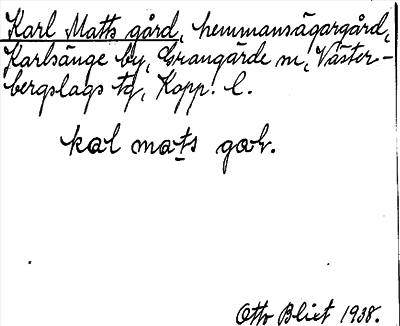 Karl Matts gård, hemmansägargård,
Karlsänge by, Grangärde sn, Väster-
bergslags tg, Kopp. l.
kal mats gar.
Otto Blixt 1938.